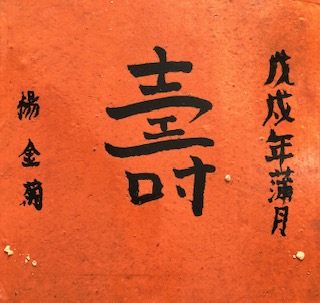 戊戌年蒲月
壽
楊金蘭